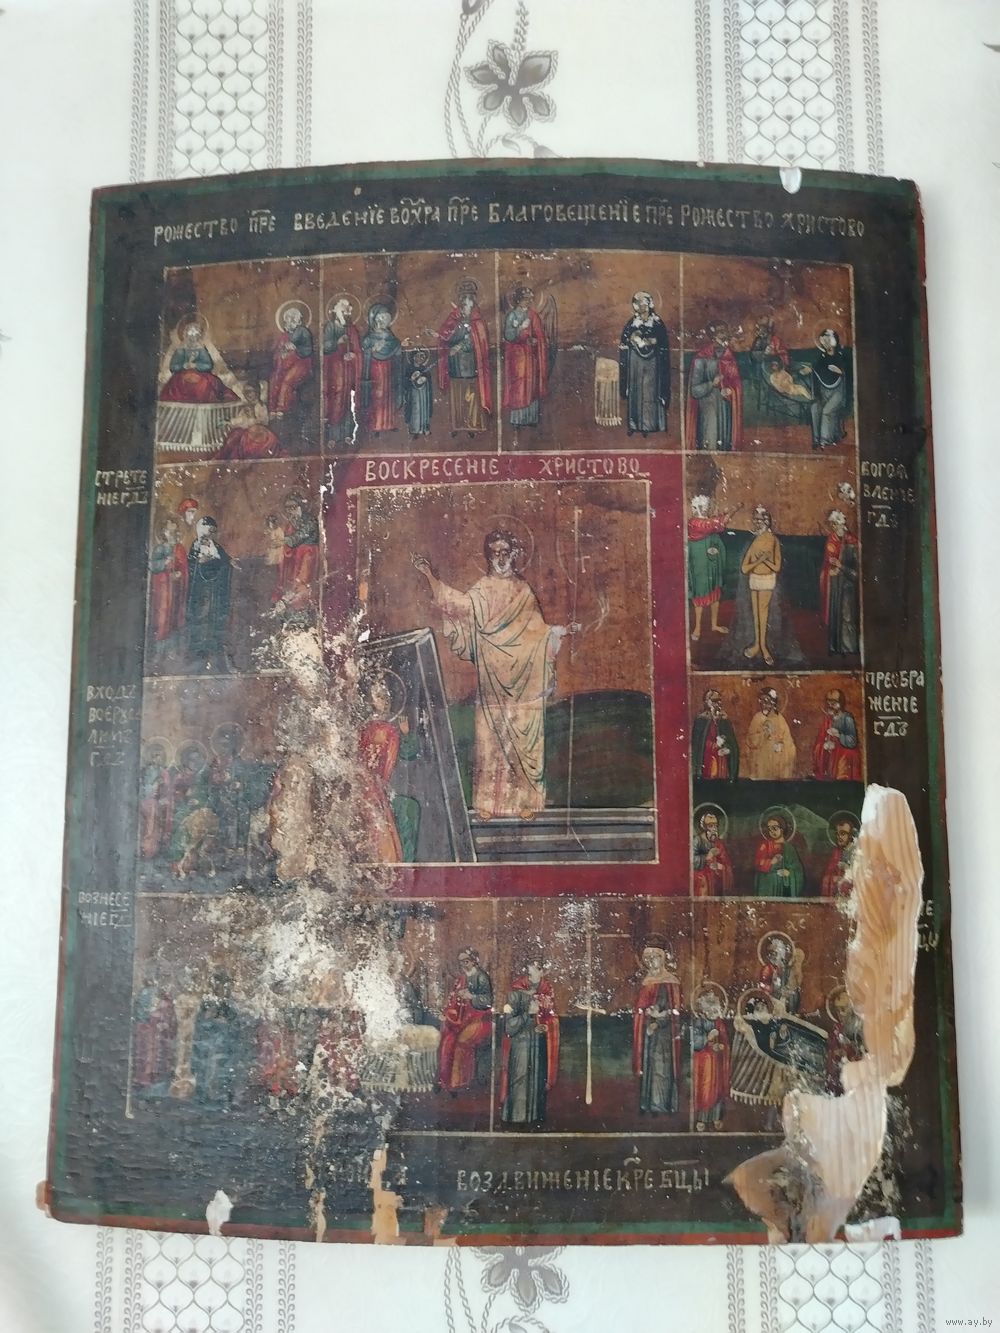 РОЖЕСТВО ПРЕ ВВЕДЕНІЕ ВОХРА ПРЕ БЛАГОВЕЩЕНІЕ ПРЕ РОЖЕСТВО ХРИСТОВО
СТРЕТЕ
НІЕ ГДЪ
ВОСКРЕСЕНІЕ ХРИСТОВО
БОГОЯ
ВЛЕНІЕ
ГДЪ
ВХОДЪ
ВОЕРУСА
ЛИМЪ
ПРЕОБРА
ЖЕНІЕ
ГДЪ
ІС ХС
ВОЗНЕСЕ
НІЕ ГД
ХС
ВОЗДВИЖЕНІЕ КРЕ БЦЫ
www.ay.by